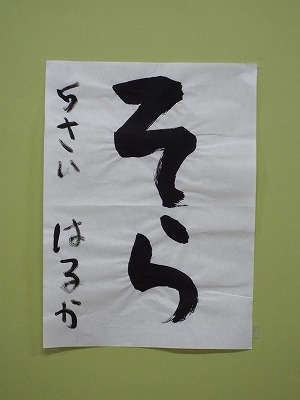 そら
5さい はるか